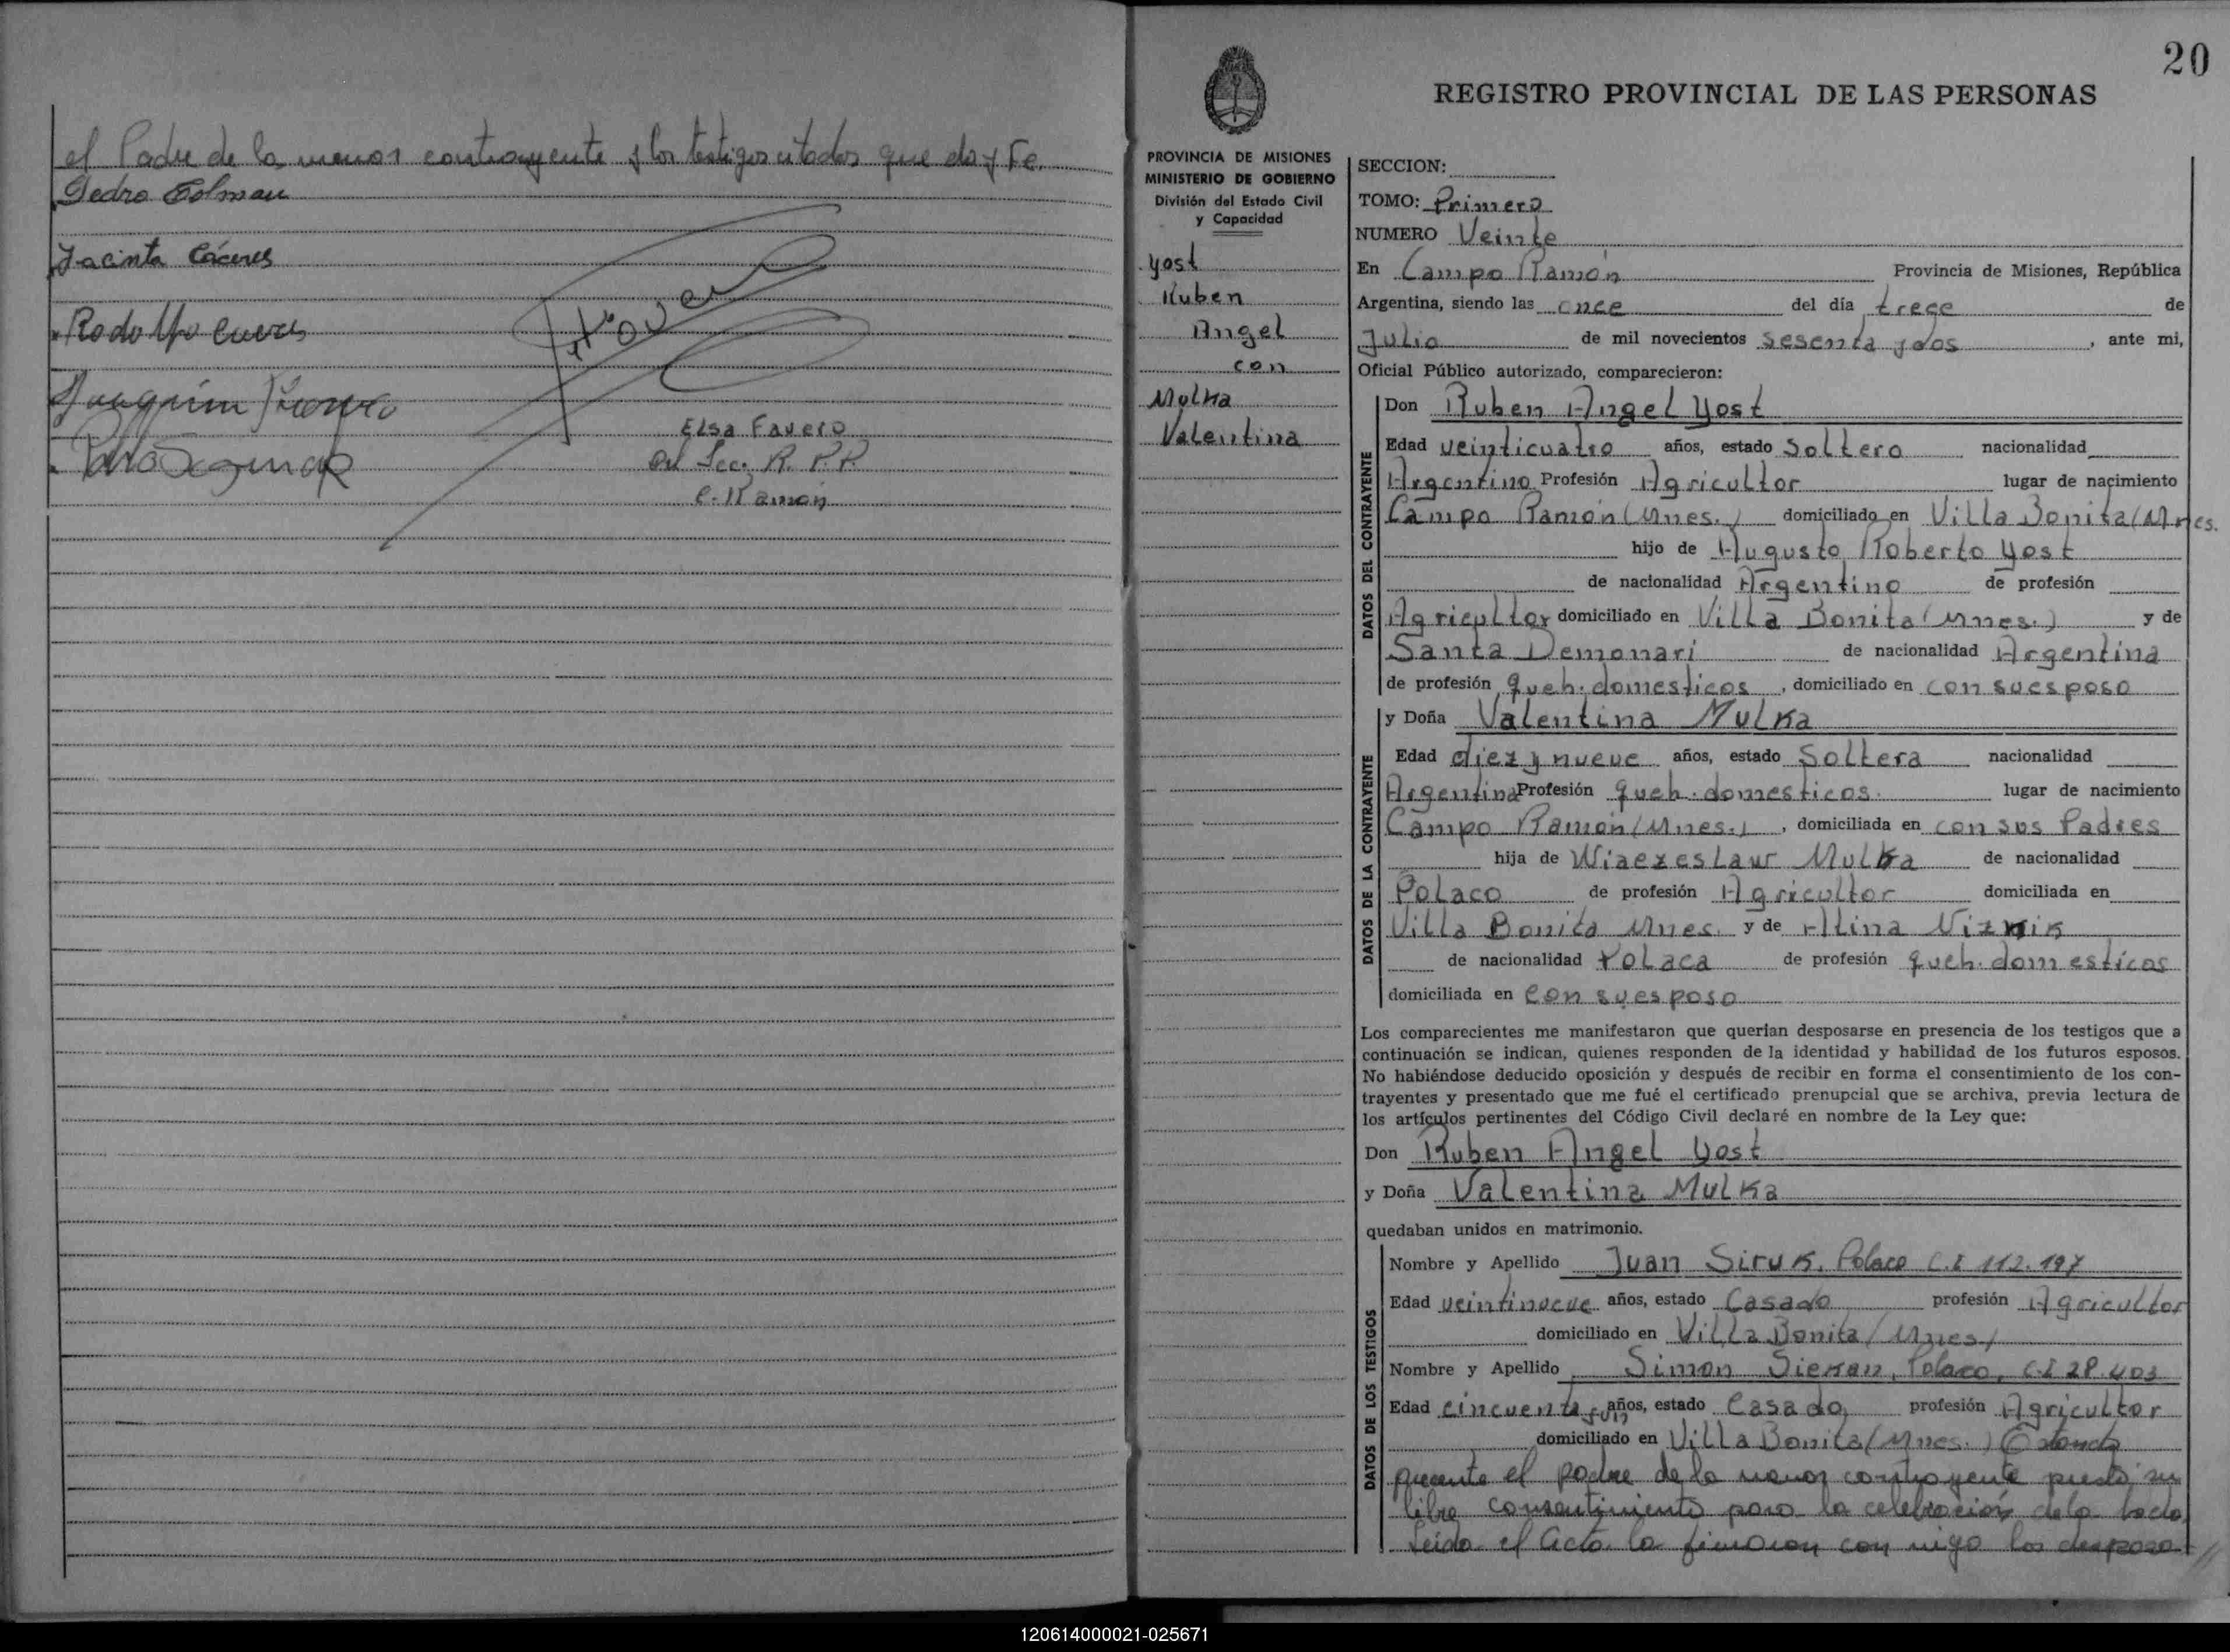 el Padre de la menor contrayente y los testigos citados que doy Fe.
Pedro Colman
Jacinta Cáceres
Rodolfo
Joaquim
Elsa Favero
Of. Sec. R. P. P.
C. Ramón
20
REGISTRO PROVINCIAL DE LAS PERSONAS
PROVINCIA DE MISIONES
MINISTERIO DE GOBIERNO
División del Estado Civil
y Capacidad
Yost
Ruben
Angel
con
Mulka
Valentina
SECCION:
TOMO: Primero
NUMERO Veinte
En Campo Ramón Provincia de Misiones, República
Argentina, siendo las once del día trece de
Julio de mil novecientos sesenta y dos, ante mi,
Oficial Público autorizado, comparecieron:
DATOS DEL CONTRAYENTE
Don Ruben Angel Yost
Edad veinticuatro años, estado Soltero nacionalidad
Argentino Profesión Agricultor lugar de nacimiento
Campo Ramón (Mnes.) domiciliado en Villa Bonita (Mnes.
hijo de Augusto Roberto Yost
de nacionalidad Argentino de profesión
Agricultor domiciliado en Villa Bonita (Mnes.) y de
Santa Demonari de nacionalidad Argentina
de profesión queh. domesticos, domiciliado en con su esposo
DATOS DE LA CONTRAYENTE
y Doña Valentina Mulka
Edad diez y nueve años, estado Soltera nacionalidad
Argentina Profesión queh. domesticos. lugar de nacimiento
Campo Ramón (Mnes.), domiciliada en con sus Padres
hija de Wiaezeslaw Mulka de nacionalidad
Polaco de profesión Agricultor domiciliada en
Villa Bonita Mnes. y de Alina Niznik
de nacionalidad Polaca de profesión queh. domesticos
domiciliada en con su esposo
Los comparecientes me manifestaron que querían desposarse en presencia de los testigos que a
continuación se indican, quienes responden de la identidad y habilidad de los futuros esposos.
No habiéndose deducido oposición y después de recibir en forma el consentimiento de los con-
trayentes y presentado que me fué el certificado prenupcial que se archiva, previa lectura de
los artículos pertinentes del Código Civil declaré en nombre de la Ley que:
Don Ruben Angel Yost
y Doña Valentina Mulka
quedaban unidos en matrimonio.
DATOS DE LOS TESTIGOS
Nombre y Apellido Juan Siruk. Polaco C.I 112.197
Edad veintinueve años, estado Casado profesión Agricultor
domiciliado en Villa Bonita (Mnes)
Nombre y Apellido Simon Siekan, Polaco, C.I 28.403
Edad cincuenta y un años, estado Casado profesión Agricultor
domiciliado en Villa Bonita (Mnes.) Estando
presente el padre de la menor contrayente prestó su
libre consentimiento para la celebración de la boda.
Leida el Acta la firmaron con migo los desposados
120614000021-025671